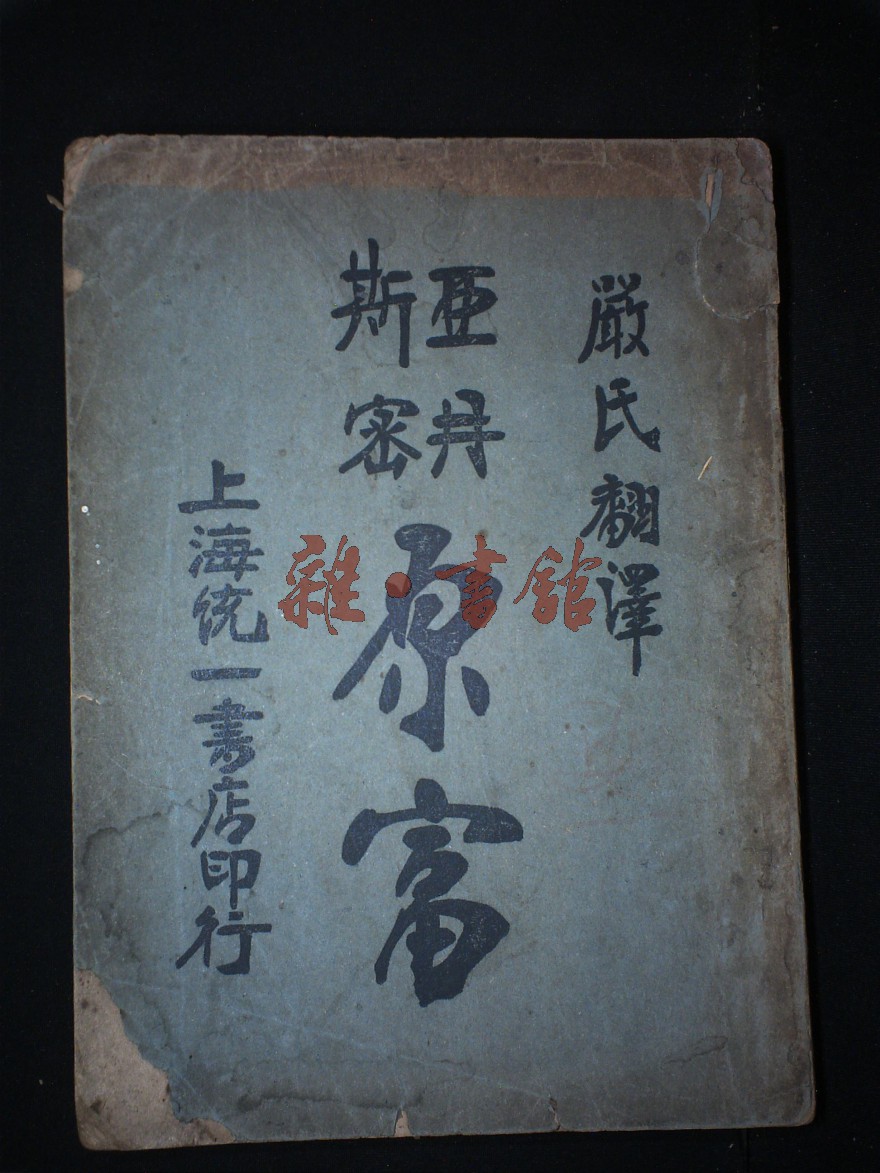 嚴氏翻澤
亞丹
斯密
原富
上海統一書店印行
雜·書館